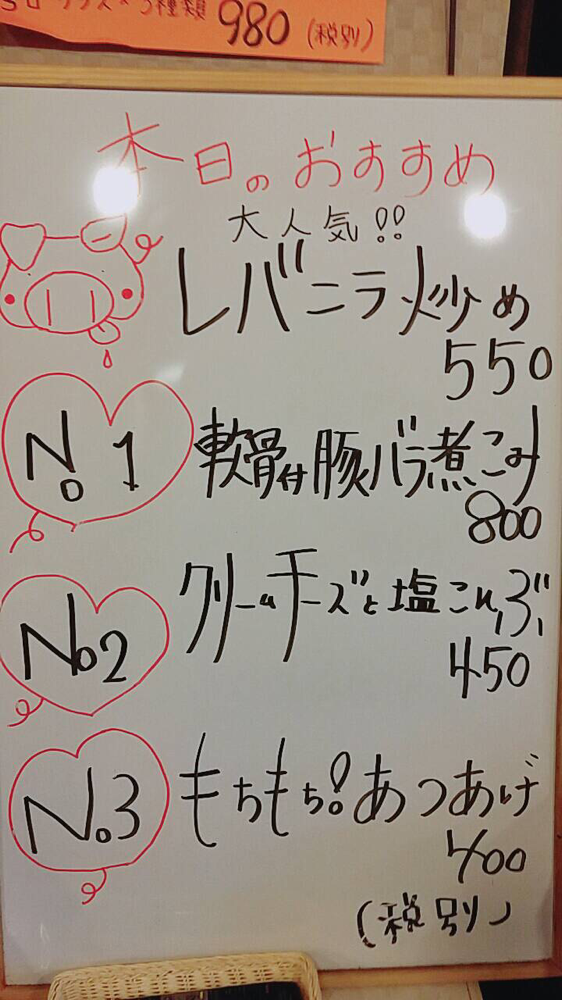 3種類 980 (税別)
本日のおすすめ
大人気!!
レバニラ炒め
550
No1 軟骨付豚バラ煮こみ
800
No2 クリームチーズと塩こんぶ
450
No.3 もちもち!あつあげ
400
(税別)